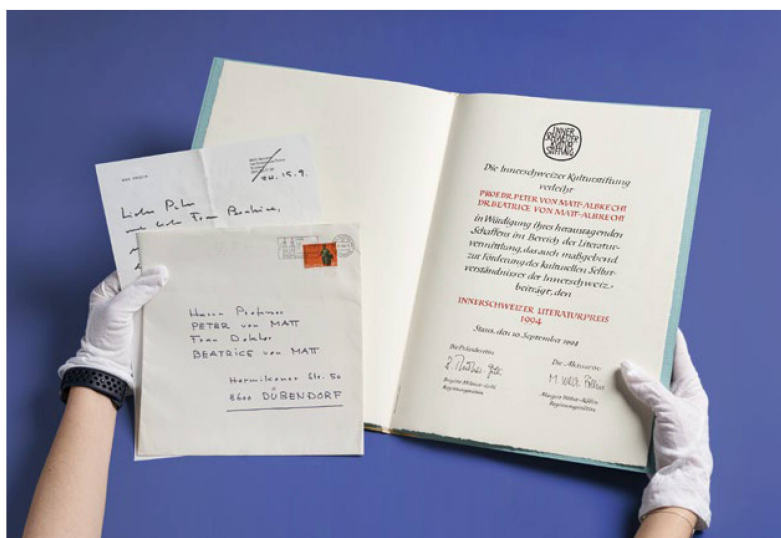 MAX FRISCH
ZH. 15.9.
Lieber Peter
und liebe Frau Beatrice,
Herrn Professor
PETER von MATT
Frau Doktor
BEATRICE von MATT
Hermikoner Str. 50
8600 DÜBENDORF
INNER
SCHWEIZER
KULTUR
STIFTUNG
Die Innerschweizer Kulturstiftung
verleiht
PROF. DR. PETER VON MATT-ALBRECHT
DR. BEATRICE VON MATT-ALBRECHT
in Würdigung ihres herausragenden
Schaffens im Bereich der Literatur-
vermittlung, das auch maßgebend
zur Förderung des kulturellen Selbst-
verständnisses der Innerschweiz
beiträgt, den
INNERSCHWEIZER LITERATURPREIS
1994
Stans, den 10. September 1994
Die Präsidentin
Brigitte
Regierungsrätin
Die Aktuarin
Margrit
Regierungsrätin